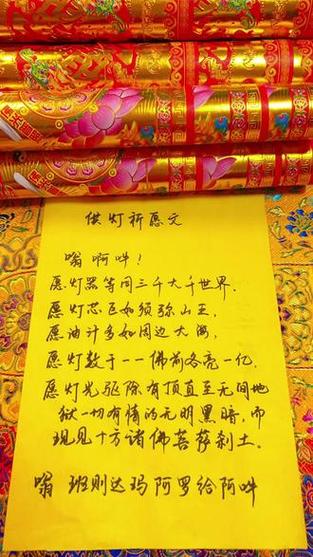 供灯祈愿文
嗡啊吽!
愿灯器等同三千大千世界.
愿灯芯巨如须弥山王,
愿油汁多如周边大海,
愿灯数于一一佛前各亮一亿.
愿灯光驱除有顶直至无间地
狱一切有情的无明黑暗,而
现见十方诸佛菩萨刹土.
嗡 班则达玛阿罗给阿吽